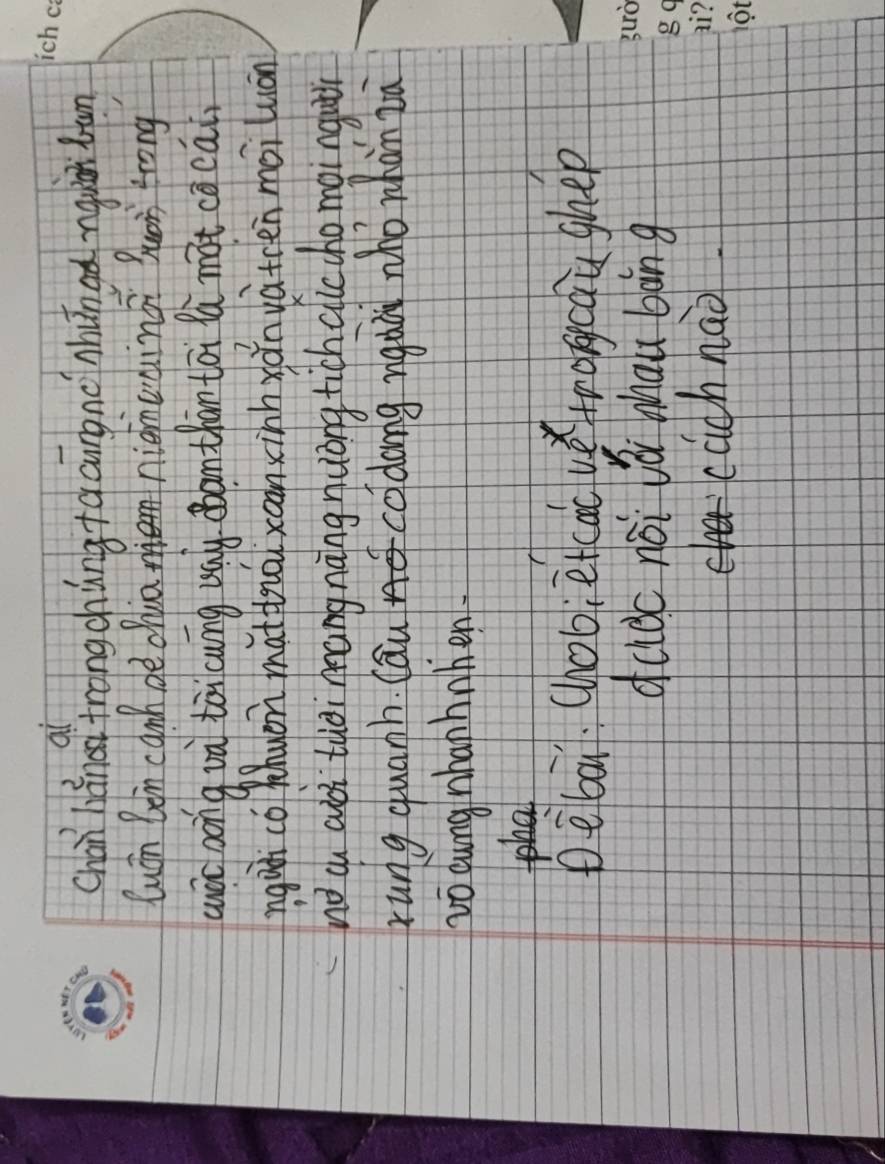 ích c
Chắn hẳn ai trong chúng ta cũng có những người bạn
luôn bên cạnh để chia niềm vui nỗi buồn trong
cuộc sống và tôi cũng vậy. Bạn thân tôi là một cô cái,
người có khuôn mặt trái xoan xinh xắn và trên môi luôn
nở cụ cười tươi mang năng nượng tích cực cho mọi người
xung quanh. Cậu có dáng người nhỏ nhắn và
vô cùng nhanh nhẹn.
Đề bài: Cho biết các vế trong câu ghép
được nối với nhau bằng
cách nào.
LUYỆN NÉT CHỮ
gười
g q
ai?
một